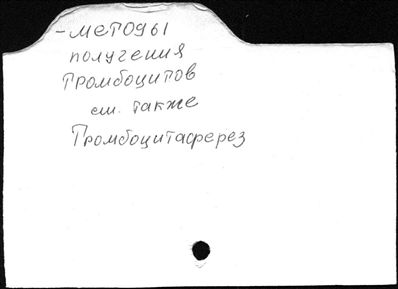 -методы
получения
тромбоцитов
см. также
Тромбоцитаферез